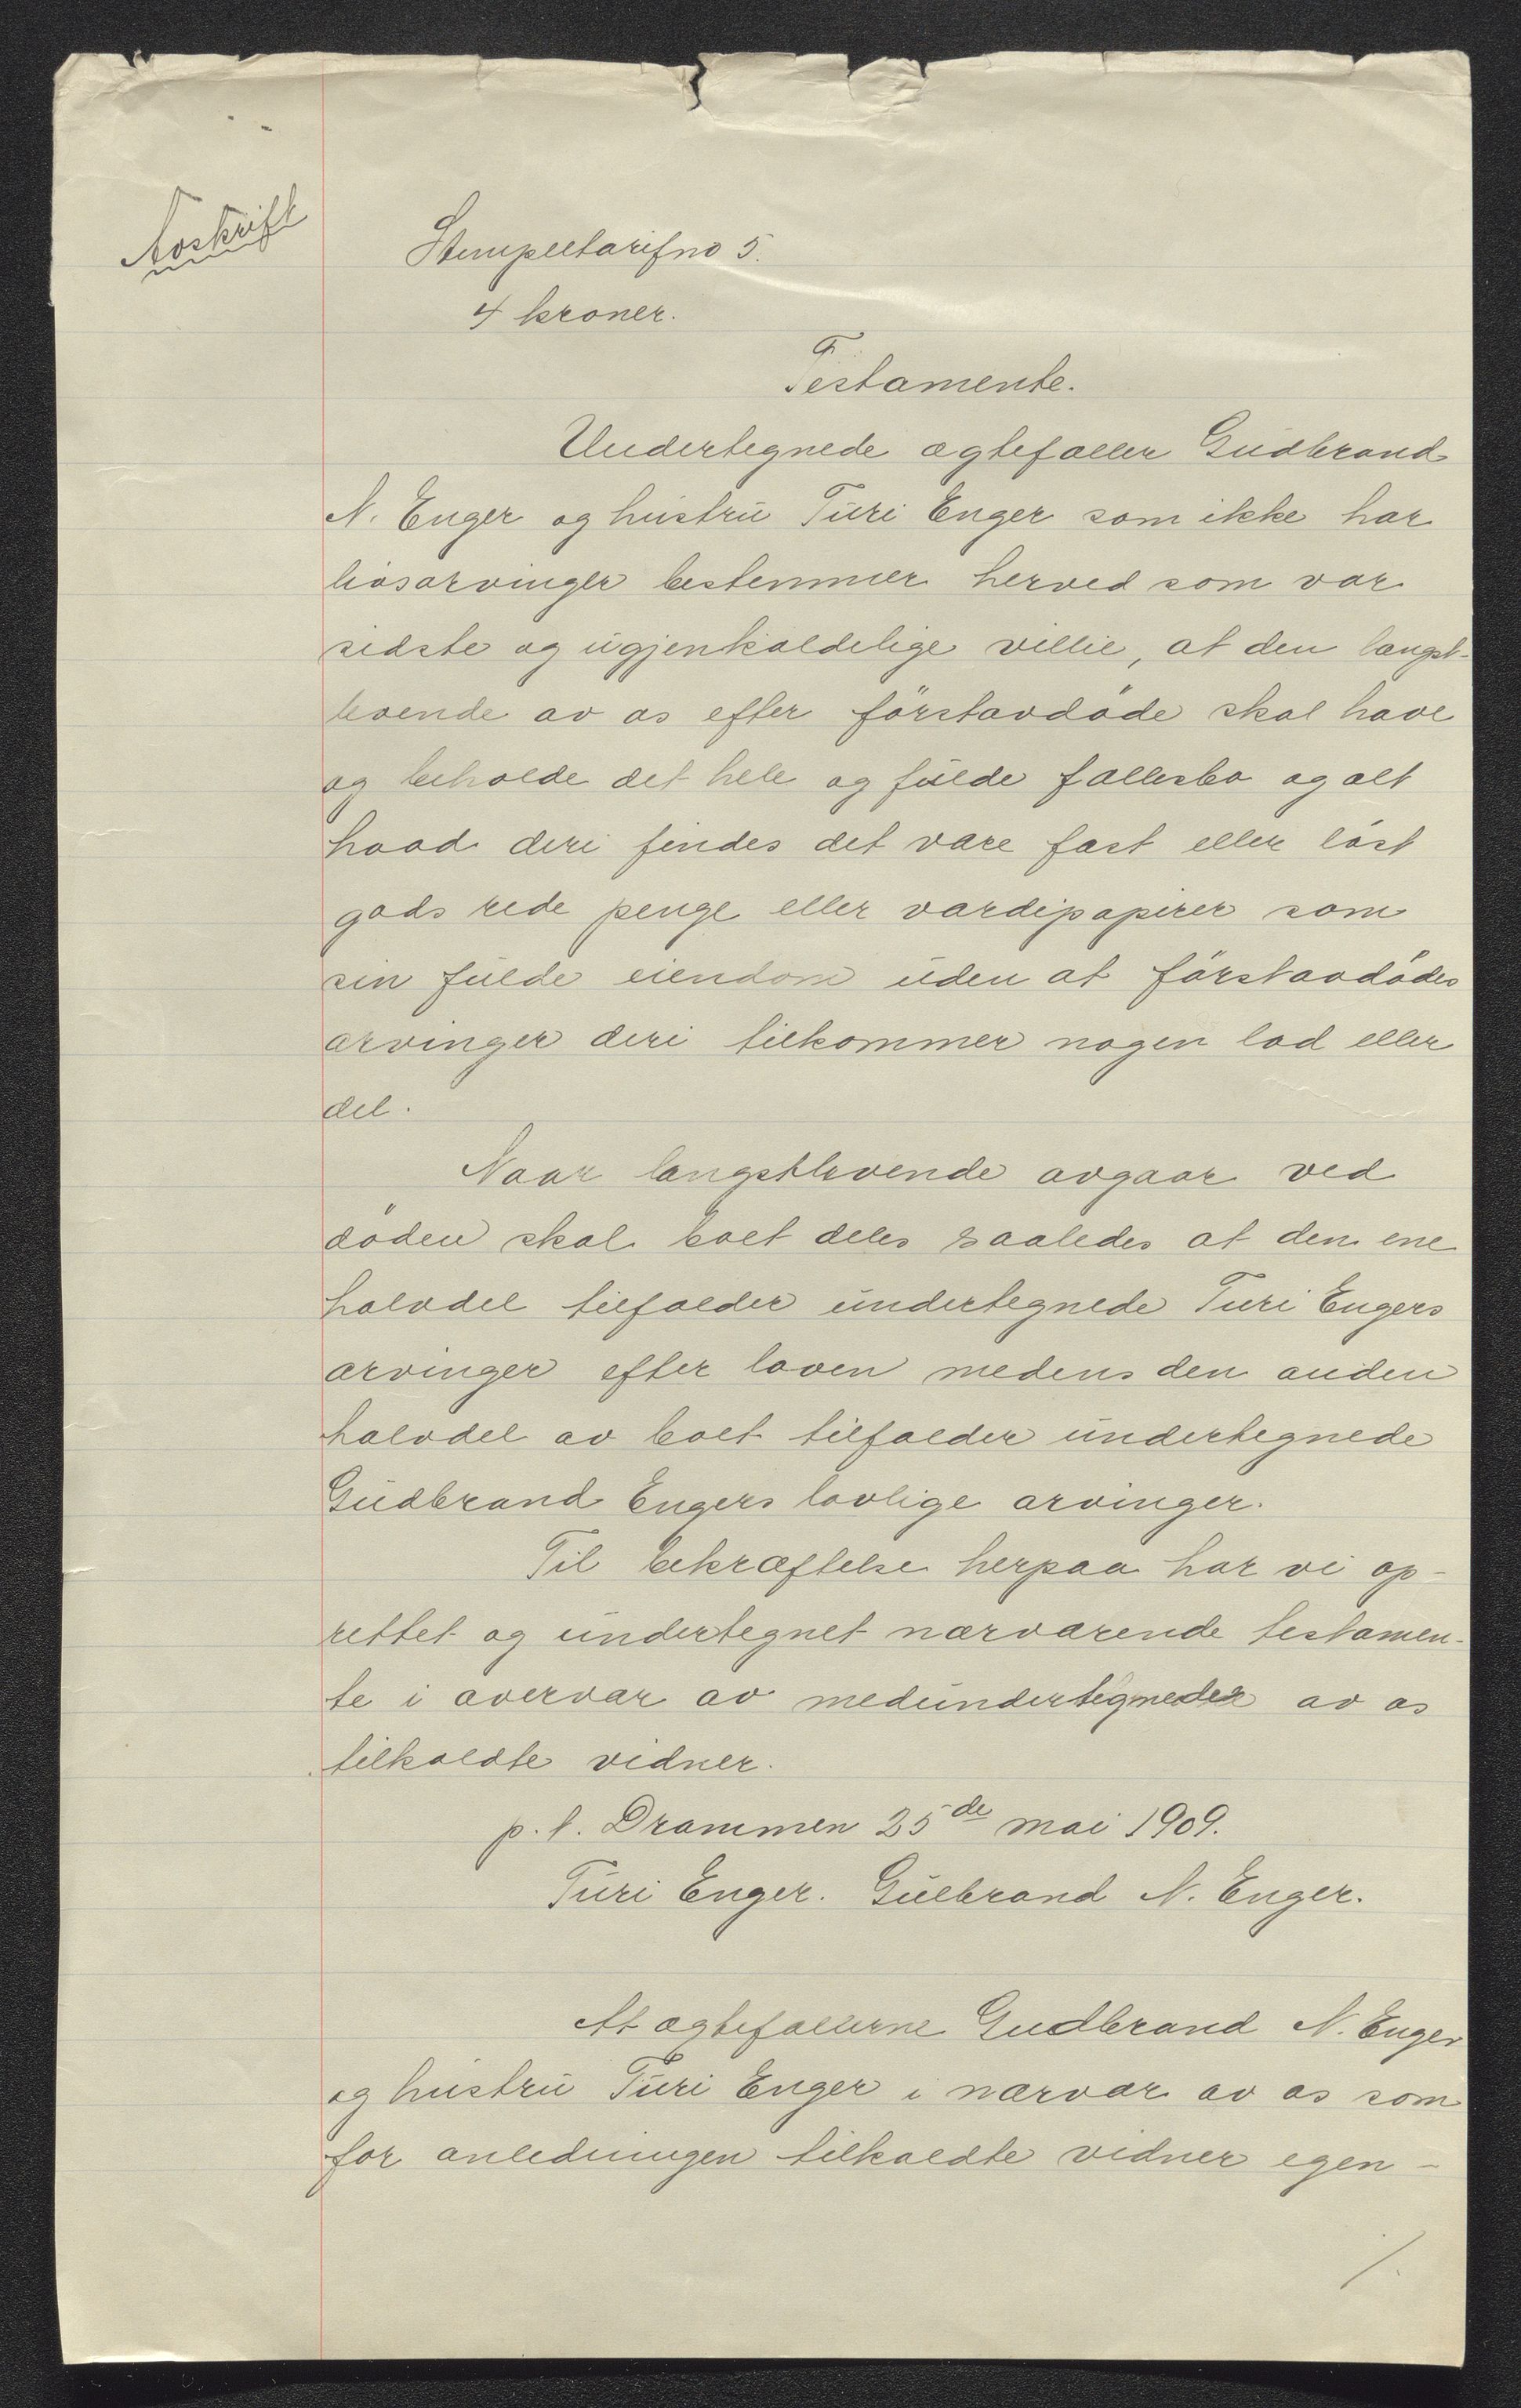 Avskrift
Stempeltarifno 5.
4 kroner.
Testamente.
Undertegnede ægtefæller Gudbrand
N. Enger og hustru Turi Enger som ikke har
livsarvinger bestemmer herved som vor
sidste og ugjenkaldelige villie, at den længst-
levende av os efter förstavdöde skal have
og beholde det hele og fulde fællesbo og alt
hvad deri findes det være fast eller löst
gods rede penge eller værdipapirer som
sin fulde eiendom uden at förstavdödes
arvinger deri tilkommer nogen lod eller
del.
Naar længstlevende avgaar ved
döden skal boet deles saaledes at den ene
halvdel tilfalder undertegnede Turi Engers
arvinger efter loven medens den anden
halvdel av boet tilfalder undertegnede
Gudbrand Engers lovlige arvinger.
Til bekræftelse herpaa har vi op-
rettet og undertegnet nærværende testamen-
te i overvær av medundertegnedes av os
tilkaldte vidner.
p. t. Drammen 25de mai 1909.
Turi Enger. Gulbrand N. Enger.
At ægtefællerne Gudbrand N. Enger
og hustru Turi Enger i nærvær av os som
for anledningen tilkaldte vidner egen-
/.